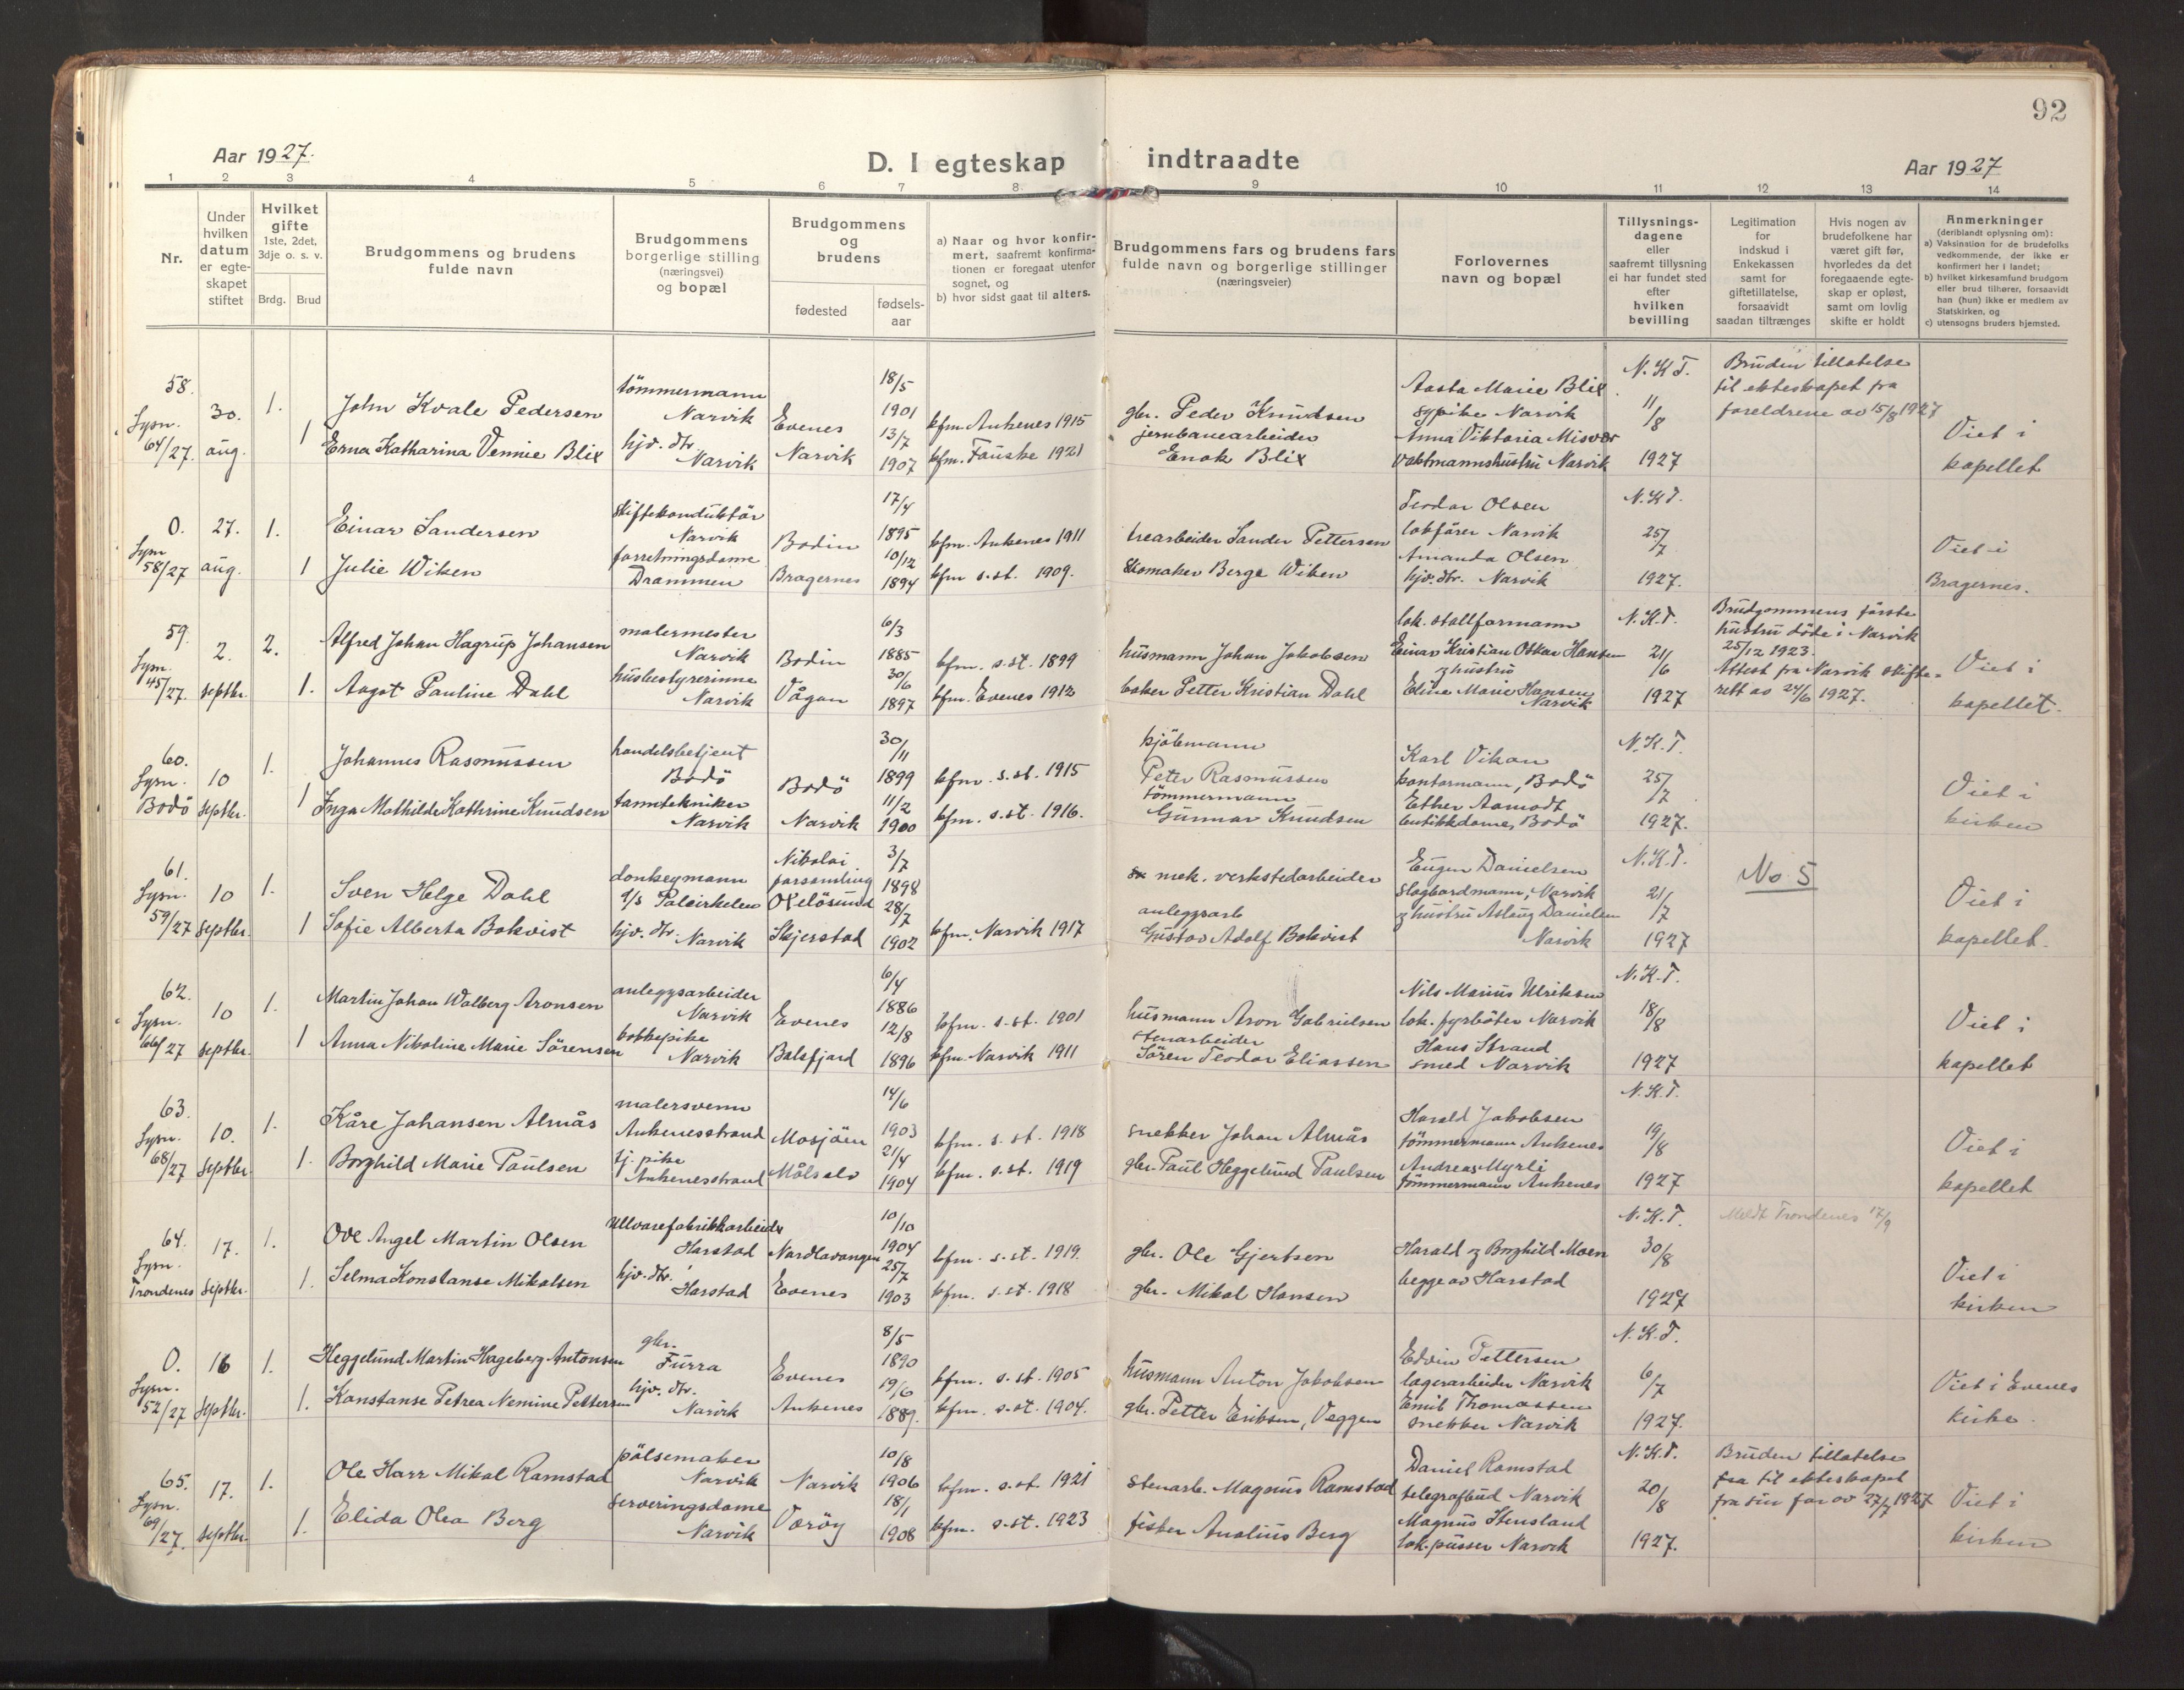 92
Aar 1927.
D. I egteskap indtraadte
Aar 1927
1 2 3 4 5 6 7 8 9 10 11 12 13 14
Nr.
Under hvilken datum er egteskapet stiftet
Hvilket gifte
1ste, 2det, 3dje o. s. v.
Brdg. Brud
Brudgommens og brudens
fulde navn
Brudgommens
borgerlige stilling
(næringsvei)
og bopæl
Brudgommens
og
brudens
fødested
fødsels-
aar
a) Naar og hvor konfir-
mert, saafremt konfirma-
tionen er foregaat utenfor
sognet, og
b) hvor sidst gaat til alters.
Brudgommens fars og brudens fars
fulde navn og borgerlige stillinger
(næringsveier)
Forlovernes
navn og bopæl
Tillysnings-
dagene
eller
saafremt tillysning
ei har fundet sted
efter
hvilken
bevilling
Legitimation
for
indskud i
Enkekassen
samt for
giftetillatelse,
forsaavidt
saadan tiltrænges
Hvis nogen av
brudefolkene har
været gift før,
hvorledes da det
foregaaende egte-
skap er opløst,
samt om lovlig
skifte er holdt
Anmerkninger
(deriblandt oplysning om):
a) Vaksination for de brudefolks
vedkommende, der ikke er
konfirmert her i landet;
b) hvilket kirkesamfund brudgom
eller brud tilhører, forsaavidt
han (hun) ikke er medlem av
Statskirken, og
c) utensogns bruders hjemsted.
58. Lysn. 64/27.
30. aug.
1.
John Kvale Pedersen
tömmermann Narvik
Evenes
18/5 1901
kfm. Ankenes 1915
gbr. Peder Knudsen
Aasta Marie Blix
sypike Narvik
N.K.T. 11/8 1927
Brudens tillatelse
til ekteskapet fra
foreldrene av 15/8 1927
Viet i kapellet
1
Erna Katharina Vennie Blix
hjv. dtr. Narvik
Narvik
13/7 1907
kfm. Fauske 1921
jernbanearbeider
Enok Blix
Anna Viktoria Misvær
vaktmannshustru Narvik
0. Lysn 58/27
27. aug.
1.
Einar Sandersen
skiftekonduktör Narvik
Bodin
17/4 1895
kfm. Ankenes 1911
trearbeider Sander Pettersen
Teodor Olsen
lokfører Narvik
N.K.T. 25/7 1927.
Viet i Bragernes.
1
Julie Wiken
forretningsdame Drammen
Bragernes
10/12 1894
kfm s.st. 1909.
Skomaker Berge Wiken
Amanda Olsen
hjv. dtr. Narvik
59. Lysn. 45/27.
2. septbr.
2.
Alfred Johan Hagrup Johansen
malermester Narvik
Bodin
6/3 1885
kfm. s.st. 1899
husmann Johan Jakobsen
lok. stallformann
Einar Kristian Oskar Hansen
N.K.T. 21/6 1927
Brudgommens første
hustru döde i Narvik
25/12 1923.
Attest fra Narvik skifte=
rett av 24/6 1927.
Viet i kapellet.
1.
Aagot Pauline Dahl
husbestyrerinne Narvik
Vågan
30/6 1897
kfm. Evenes 1912
baker Petter Kristian Dahl
og hustru
Eline Marie Hansen
Narvik
60. Lysn. Bodö
10 septbr.
1.
Johannes Rasmussen
handelsbetjent Bodö
Bodö
30/11 1899
kfm. s.st. 1915
kjöbmann
Peter Rasmussen
Karl Vikan
kontormann, Bodö
N.K.T. 25/7 1927.
Viet i kirken
1
Inga Mathilde Kathrine Knudsen
tanntekniker Narvik
Narvik
11/2 1900
kfm. s.st. 1916.
tömmermann
Gunnar Knudsen
Esther Aamodt
butikkdame, Bodö
61. Lysn. 59/27
10 septbr.
1.
Sven Helge Dahl
donkeymann
d/s Polcirkelen
Nikolai forsamling Oxelösund
3/7 1898
mek. verkstedarbeider
Eugen Danielsen
Slagbordmann, Narvik
N.K.T. 21/7 1927
No 5
Viet i kapellet.
1
Sofie Alberta Bokvist
hjv. dtr. Narvik
Skjerstad
28/7 1902
kfm. Narvik 1917
anleggsarb
Gustav Adolf Bokvist
og hustru Aslaug Danielsen
Narvik
62. Lysn. 66/27
10 septbr.
1.
Martin Johan Walberg Aronsen
anleggsarbeider Narvik
Evenes
6/4 1886
kfm. s.st. 1901
husmann Aron Gabrielsen
Nils Marius Ulriksen
lok. fyrböter Narvik
N.K.T. 18/8 1927
Viet i kapellet
1
Anna Nikoline Marie Sörensen
kokkepike Narvik
Balsfjord
12/8 1896
kfm Narvik 1911
stenarbeider
Sören Teodor Eliassen
Hans Strand
smed Narvik
63. Lysn. 68/27
10. septbr.
1.
Kåre Johansen Almås
malersvenn
Ankenesstrand
Mosjöen
14/6 1903
kfm. s.st. 1918
snekker Johan Almås
Harald Jakobsen
tömmermann Ankenes
N.K.T. 19/8 1927
Viet i kapellet
1.
Borghild Marie Paulsen
tj. pike
Ankenesstrand
Målselv
21/4 1904
kfm. s.st. 1919
gbr. Paul Heggelund Paulsen
Andreas Myrli
tömmermann Ankenes
64. Lysn. Trondenes
17. septbr.
1.
Ove Angel Martin Olsen
Ullvarefabrikkarbeider
Harstad
Nordlavangen
10/10 1904
kfm. s.st. 1919.
gbr. Ole Gjertsen
Harald og Borghild Moen
begge av Harstad
N.K.T. 30/8 1927
Meldt Trondenes 17/9
Viet i kirken
1.
Selma Konstanse Mikalsen
hjv. dtr. Harstad
Evenes
25/7 1903
kfm. s.st. 1918
gbr. Mikal Hansen
0. Lysn. 52/27
16 septbr.
1.
Heggelund Martin Hageberg Antonsen
gbr. Furra
Evenes
8/5 1890
kfm. s.st. 1905
husmann Anton Jakobsen
Edvin Pettersen
lagerarbeider Narvik
N.K.T. 6/7 1927.
Viet i Evenes kirke.
1.
Konstanse Petrea Nemine Pettersen
hjv. dtr. Narvik
Ankenes
19/6 1889.
kfm. s.st. 1904.
gbr. Petter Eriksen, Veggen
Emil Thomassen
snekker Narvik
65. Lysn. 69/27.
17. septbr.
1.
Ole Harr Mikal Ramstad
pölsemaker Narvik
Narvik
10/8 1906
kfm. s.st. 1921
stenarb. Magnus Ramstad
Daniel Ramstad
telegrafbud Narvik
N.K.T. 20/8 1927.
Bruden tillatelse
til ekteskapet
fra sin far av 27/7 1927
Viet i kirken
1.
Elida Olea Berg
Serveringsdame Narvik
Væröy
18/1 1908
kfm. s.st. 1923
fisker Analius Berg
Magnus Stensland
lok.pusser Narvik